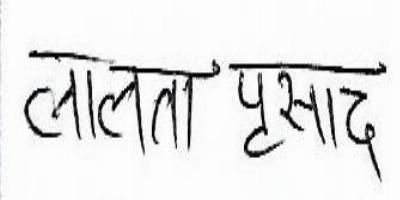 लालता प्रसाद